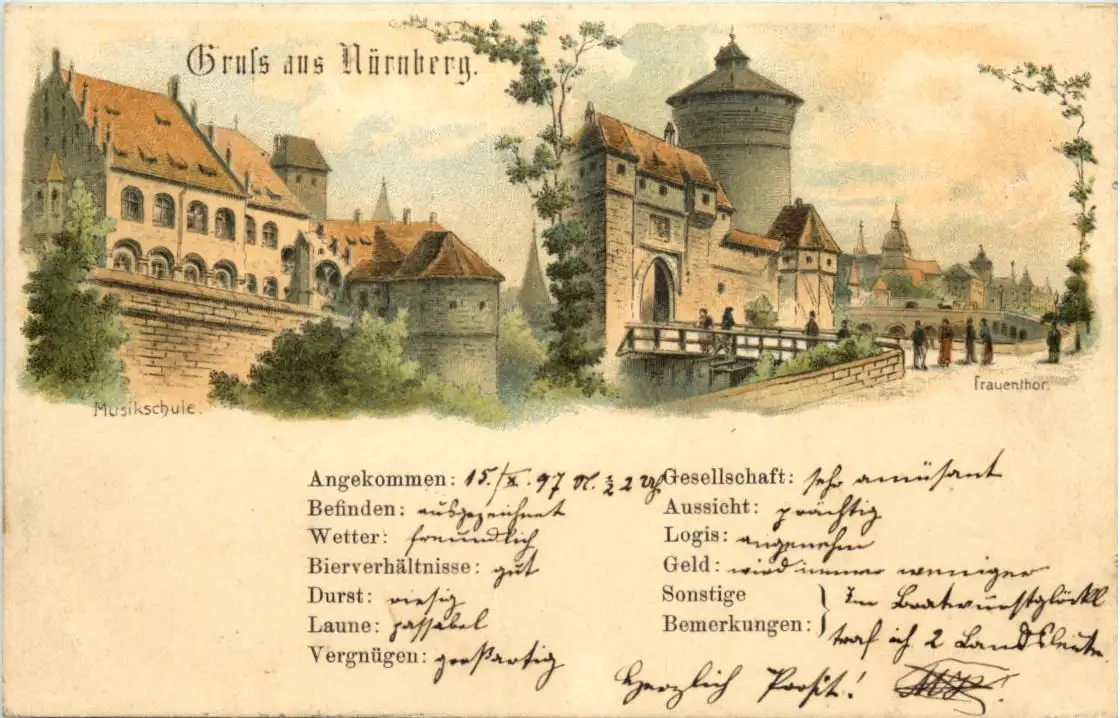 Gruſs aus Nürnberg.
Musikschule.
Frauenthor.
Angekommen: 15./X. 97 N. ½ 2 Uhr
Befinden: ausgezeichnet
Wetter: freundlich
Bierverhältnisse: gut
Durst: riesig
Laune: passabel
Vergnügen: großartig
Gesellschaft: sehr amüsant
Aussicht: prächtig
Logis: angenehm
Geld: wird immer weniger
Sonstige Bemerkungen: } Im Bratwurstglöckl
traf ich 2 Landsleute.
Herzlich Prosit!